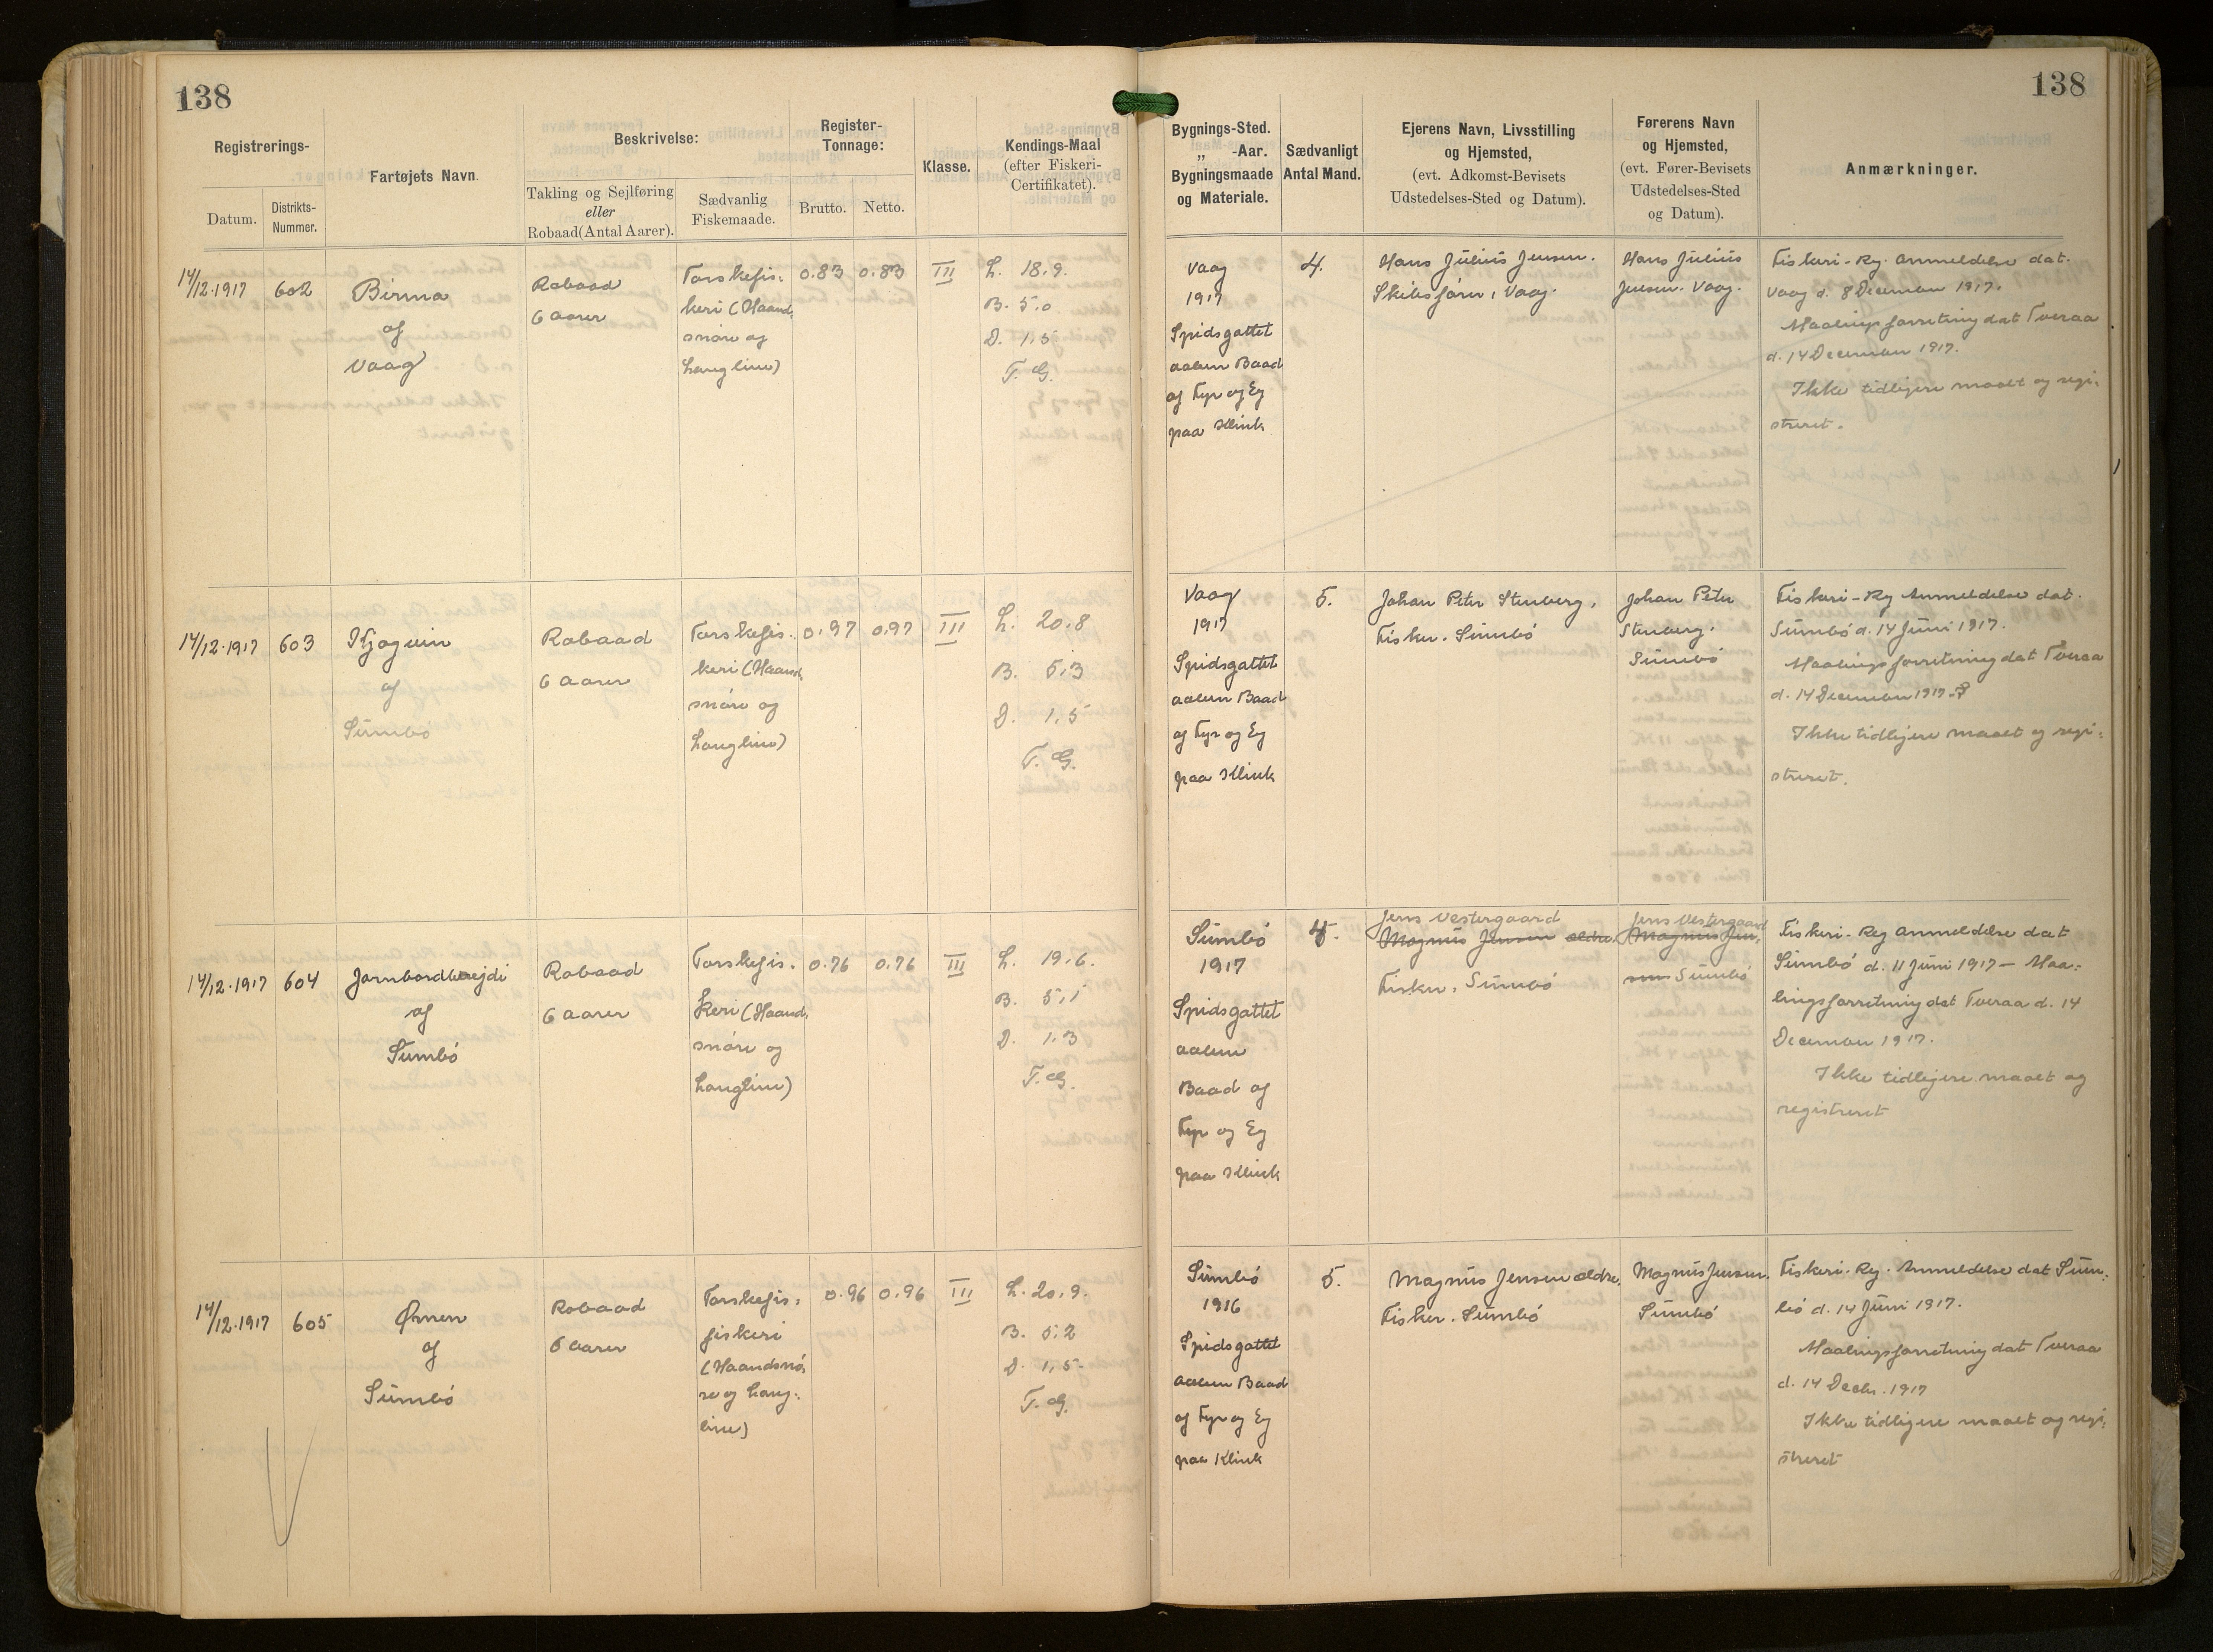 138
138
Registrerings-
Datum.
Distrikts-
Nummer.
Fartøjets Navn.
Beskrivelse:
Takling og Sejlføring
eller
Robaad (Antal Aarer).
Sædvanlig
Fiskemaade.
Register-
Tonnage:
Brutto.
Netto.
Klasse.
Kendings-Maal
(efter Fiskeri-
Certifikatet).
Bygnings-Sted.
„ -Aar.
Bygningsmaade
og Materiale.
Sædvanligt
Antal Mand.
Ejerens Navn, Livsstilling
og Hjemsted,
(evt. Adkomst-Bevisets
Udstedelses-Sted og Datum).
Førerens Navn
og Hjemsted,
(evt. Fører-Bevisets
Udstedelses-Sted
og Datum).
Anmærkninger.
14/12.1917
602
Birma
af
Vaag
Robaad
6 aarer
Torskefis-
keri (Haand-
snöre og
Langline)
0.83
0.83
III
L. 18.9.
B. 5.0
D. 1.5
T. G.
Vaag
1917
Spidsgattet
aaben Baad
af Fyr og Eg
paa Klink
4.
Hans Julius Jensen.
Skibsförer, Vaag.
Hans Julius
Jensen. Vaag.
Fiskeri-Reg. Anmeldelse dat.
Vaag d. 8 December 1917.
Maalingsforretning dat Tveraa
d. 14 December 1917.
Ikke tidligere maalt og regi-
streret.
14/12.1917
603
af
Sumbö
Robaad
6 aarer
Torskefis-
keri (Haand-
snöre og
Langline)
0.97
0.97
III
L. 20.8
B. 5.3
D. 1.5
T. G.
Vaag
1917
Spidsgattet
aaben Baad
af Fyr og Eg
paa Klink
5.
Johan Peter Stenberg,
Fisker. Sumbö
Johan Peter
Stenberg.
Sumbö
Fiskeri-Reg Anmeldelse dat.
Sumbö d. 14 Juni 1917.
Maalingsforretning dat Tveraa
d. 14 December 1917.
Ikke tidligere maalt og regi-
streret.
14/12.1917
604
af
Sumbö
Robaad
6 aarer
Torskefis-
keri (Haand-
snöre og
Langline)
0.76
0.76
III
L. 19.6.
B. 5.1
D. 1.3
T. G.
Sumbö
1917
Spidsgattet
aaben
Baad af
Fyr og Eg
paa Klink
Jens Vestergaard
Magnus Jensen ældre.
Fisker, Sumbö
Jens Vestergaard
Magnus Jen-
sen Sumbö
Fiskeri-Reg Anmeldelse dat
Sumbö d. 11 Juni 1917 - Maa-
lingsforretning dat Tveraa d. 14
December 1917.
Ikke tidligere maalt og
registreret
14/12.1917
605
Ørnen
af
Sumbö
Robaad
6 aarer
Torskefis-
fiskeri
(Haandsnö-
re og Lang-
line)
0.96
0.96
III
L. 20.9.
B. 5.2
D. 1.5
T. G.
Sumbö
1916
Spidsgattet
aaben Baad
af Fyr og Eg
paa Klink
5.
Magnus Jensen ældre.
Fisker. Sumbö
Magnus Jensen.
Sumbö
Fiskeri-Reg. Anmeldelse dat Sum-
bö d. 14 Juni 1917.
Maalingsforretning dat Tveraa
d. 14 Decbr. 1917
Ikke tidligere maalt og regi-
streret